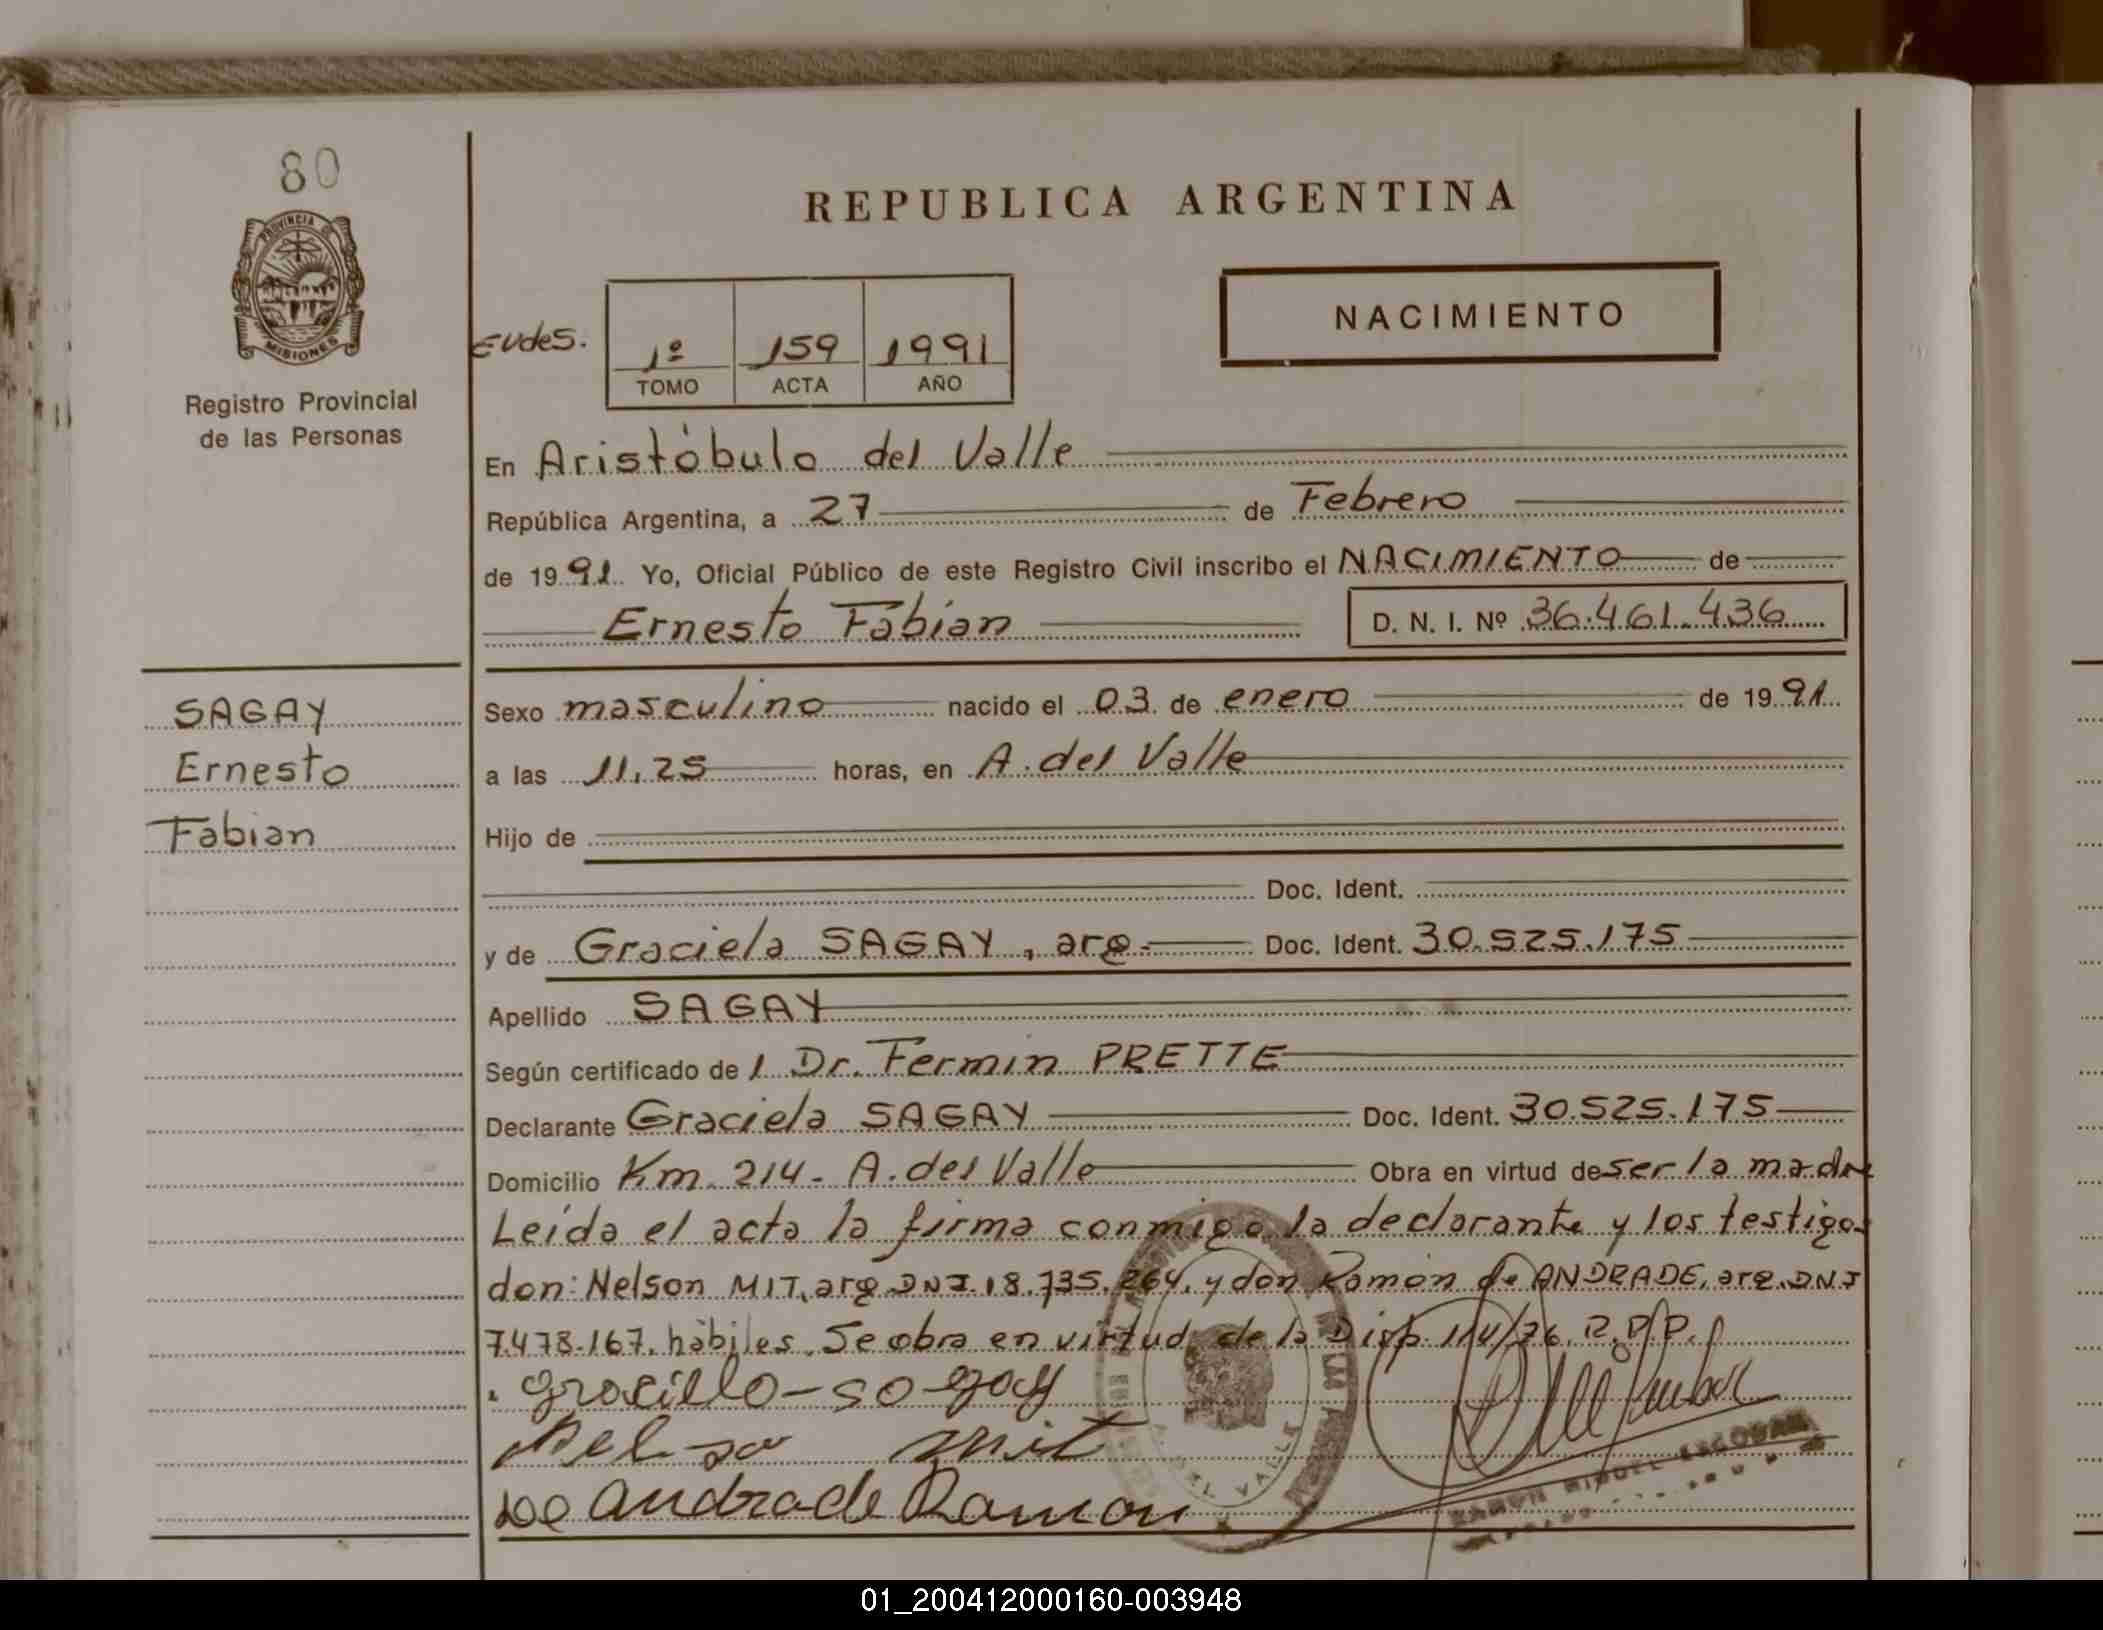 80
PROVINCIA DE
MISIONES
Registro Provincial
de las Personas
SAGAY
Ernesto
Fabian
REPUBLICA ARGENTINA
NACIMIENTO
Eudes. 1º 159 1991
TOMO ACTA AÑO
En Aristóbulo del Valle
República Argentina, a 27 de Febrero
de 1991. Yo, Oficial Público de este Registro Civil inscribo el NACIMIENTO de
Ernesto Fabian D. N. I. Nº 36.461.436
Sexo masculino nacido el 03 de enero de 1991
a las 11,25 horas, en A. del Valle
Hijo de
Doc. Ident.
y de Graciela SAGAY, arg. Doc. Ident. 30.525.175
Apellido SAGAY
Según certificado de l Dr. Fermin PRETTE
Declarante Graciela SAGAY Doc. Ident. 30.525.175
Domicilio Km. 214- A. del Valle Obra en virtud de ser la madre
Leída el acta la firma conmigo la declarante y los testigos
don: Nelson MIT, arg. DNI. 18.735.264. y don Ramón de ANDRADE, arg. D.N.I
7.478.167. hábiles. Se obra en virtud de la Disp. 114/76. R.P.P.
gracillo-so-gay
Nelso mit
De andrade Ramon
DEL VALLE
RAMON MIGUEL ESCOBAR
01_200412000160-003948